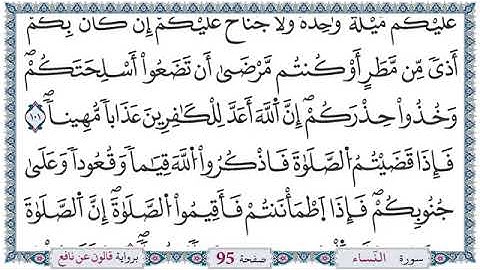 عَلَيْكُم مَّيْلَةً وَٰحِدَةً وَلَا جُنَاحَ عَلَيْكُمْ إِن كَانَ بِكُمْ
أَذىٗ مِّن مَّطَرٍ أَوْ كُنتُم مَّرْضَىٰ أَن تَضَعُوٓاْ أَسْلِحَتَكُمْ
وَخُذُواْ حِذْرَكُمْ إِنَّ ٱللَّهَ أَعَدَّ لِلْكَٰفِرِينَ عَذَاباٗ مُّهِيناٗ ١٠١
فَإِذَا قَضَيْتُمُ ٱلصَّلَوٰةَ فَاذْكُرُواْ ٱللَّهَ قِيَٰماٗ وَقُعُوداٗ وَعَلَىٰ
جُنُوبِكُمْ فَإِذَا ٱطْمَأْنَنتُمْ فَأَقِيمُواْ ٱلصَّلَوٰةَ إِنَّ ٱلصَّلَوٰةَ
سورة النساء صفحة 95 برواية قالون عن نافع